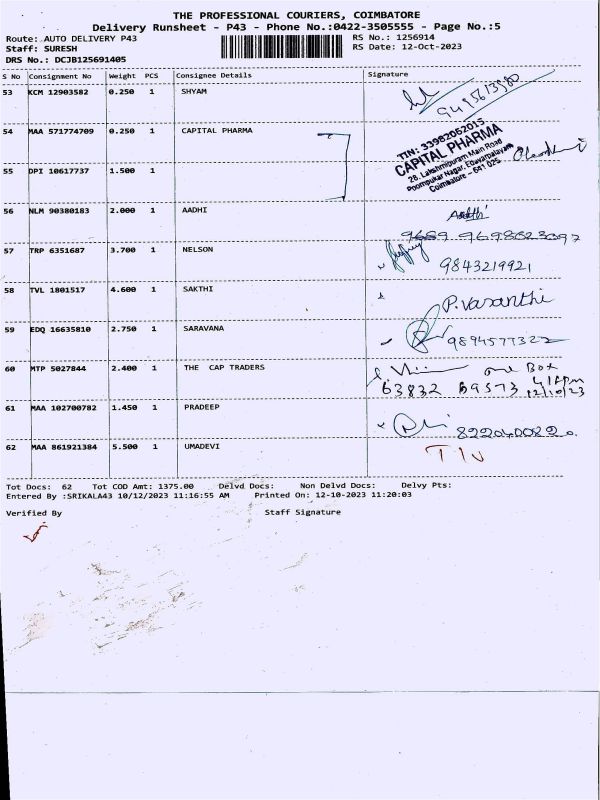 THE PROFESSIONAL COURIERS, COIMBATORE
Delivery Runsheet - P43 - Phone No.:0422-3505555 - Page No.:5
Route: AUTO DELIVERY P43 RS No.: 1256914
Staff: SURESH RS Date: 12-Oct-2023
DRS No.: DCJB125691405
S No Consignment No Weight PCS Consignee Details Signature
53 KCM 12903582 0.250 1 SHYAM
54 MAA 571774709 0.250 1 CAPITAL PHARMA
TIN: 33982062015
CAPITAL PHARMA
28, Lakshmipuram Main Road
Poompukar Nagar, Edayarpalayam
Coimbatore - 641 025
55 DPI 10617737 1.500 1
56 NLM 90380183 2.000 1 AADHI Aadhi
57 TRP 6351687 3.700 1 NELSON 9843219921
58 TVL 1801517 4.600 1 SAKTHI P. Vasanthi
59 EDQ 16635810 2.750 1 SARAVANA 9894577322
60 MTP 5027844 2.400 1 THE CAP TRADERS one Box
63832 12/10/23
61 MAA 102700782 1.450 1 PRADEEP
62 MAA 861921384 5.500 1 UMADEVI
Tot Docs: 62 Tot COD Amt: 1375.00 Delvd Docs: Non Delvd Docs: Delvy Pts:
Entered By :SRIKALA43 10/12/2023 11:16:55 AM Printed On: 12-10-2023 11:20:03
Verified By Staff Signature